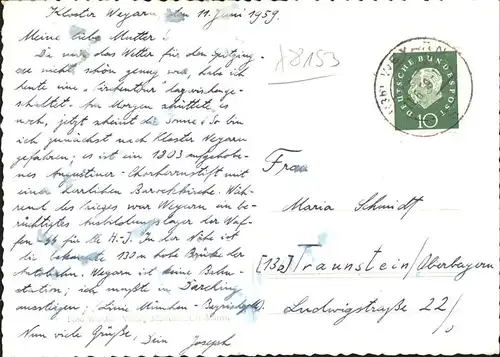 Kloster Weyarn, den 11. Juni 1959.
Meine liebe Mutter!
Da mir das Wetter für den Spitzing-
see nicht schön genug war, habe ich
heute eine "Irschentour"
schaltet. Am Morgen schüttete es
noch, jetzt scheint die Sonne. So bin
ich zunächst nach Kloster Weyarn
gefahren; es ist ein 1803 aufgehobe-
nes Augustiner-Chorherrnstift mit
einer herrlichen Barockkirche. Wäh-
rend des Krieges war Weyarn ein be-
rüchtigtes Ausbildungslager der Waf-
fen-SS für die H.J. In der Nähe ist
die bekannte 130 m hohe Brücke der
Autobahn. Weyarn ist keine Bahn-
station; ich mußte in Darching
aussteigen (Linie München - Bayrischzell).
Nun viele Grüße, Dein Joseph
A8153
DEUTSCHE BUNDESPOST
10
Frau
Maria Schmidt
(13a) Traunstein/Oberbayern
Ludwigstraße 22/